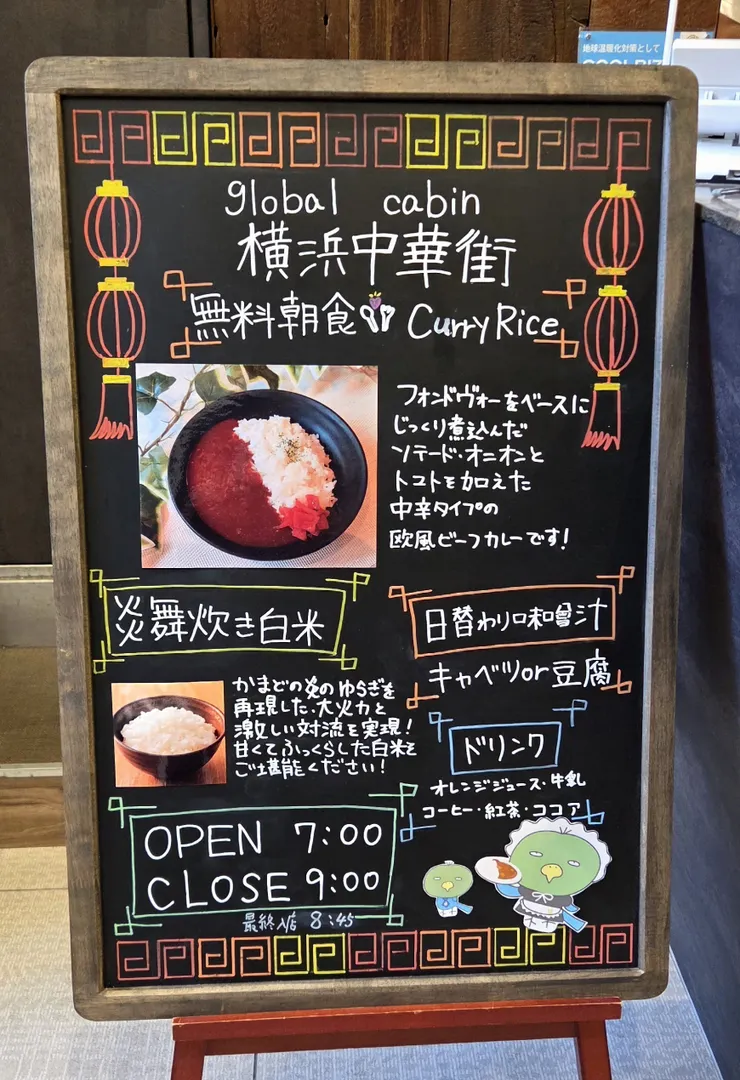 地球温暖化対策として
COOLBIZ
global cabin
横浜中華街
無料朝食 Curry Rice
フォンドヴォーをベースに
じっくり煮込んだ
ソテード・オニオンと
トマトを加えた
中辛タイプの
欧風ビーフカレーです!
炎舞炊き白米
かまどの炎のゆらぎを
再現した、大火力と
激しい対流を実現!
甘くてふっくらした白米を
ご堪能ください!
日替わり味噌汁
キャベツor豆腐
ドリンク
オレンジジュース・牛乳
コーヒー・紅茶・ココア
OPEN 7:00
CLOSE 9:00
最終入店 8:45